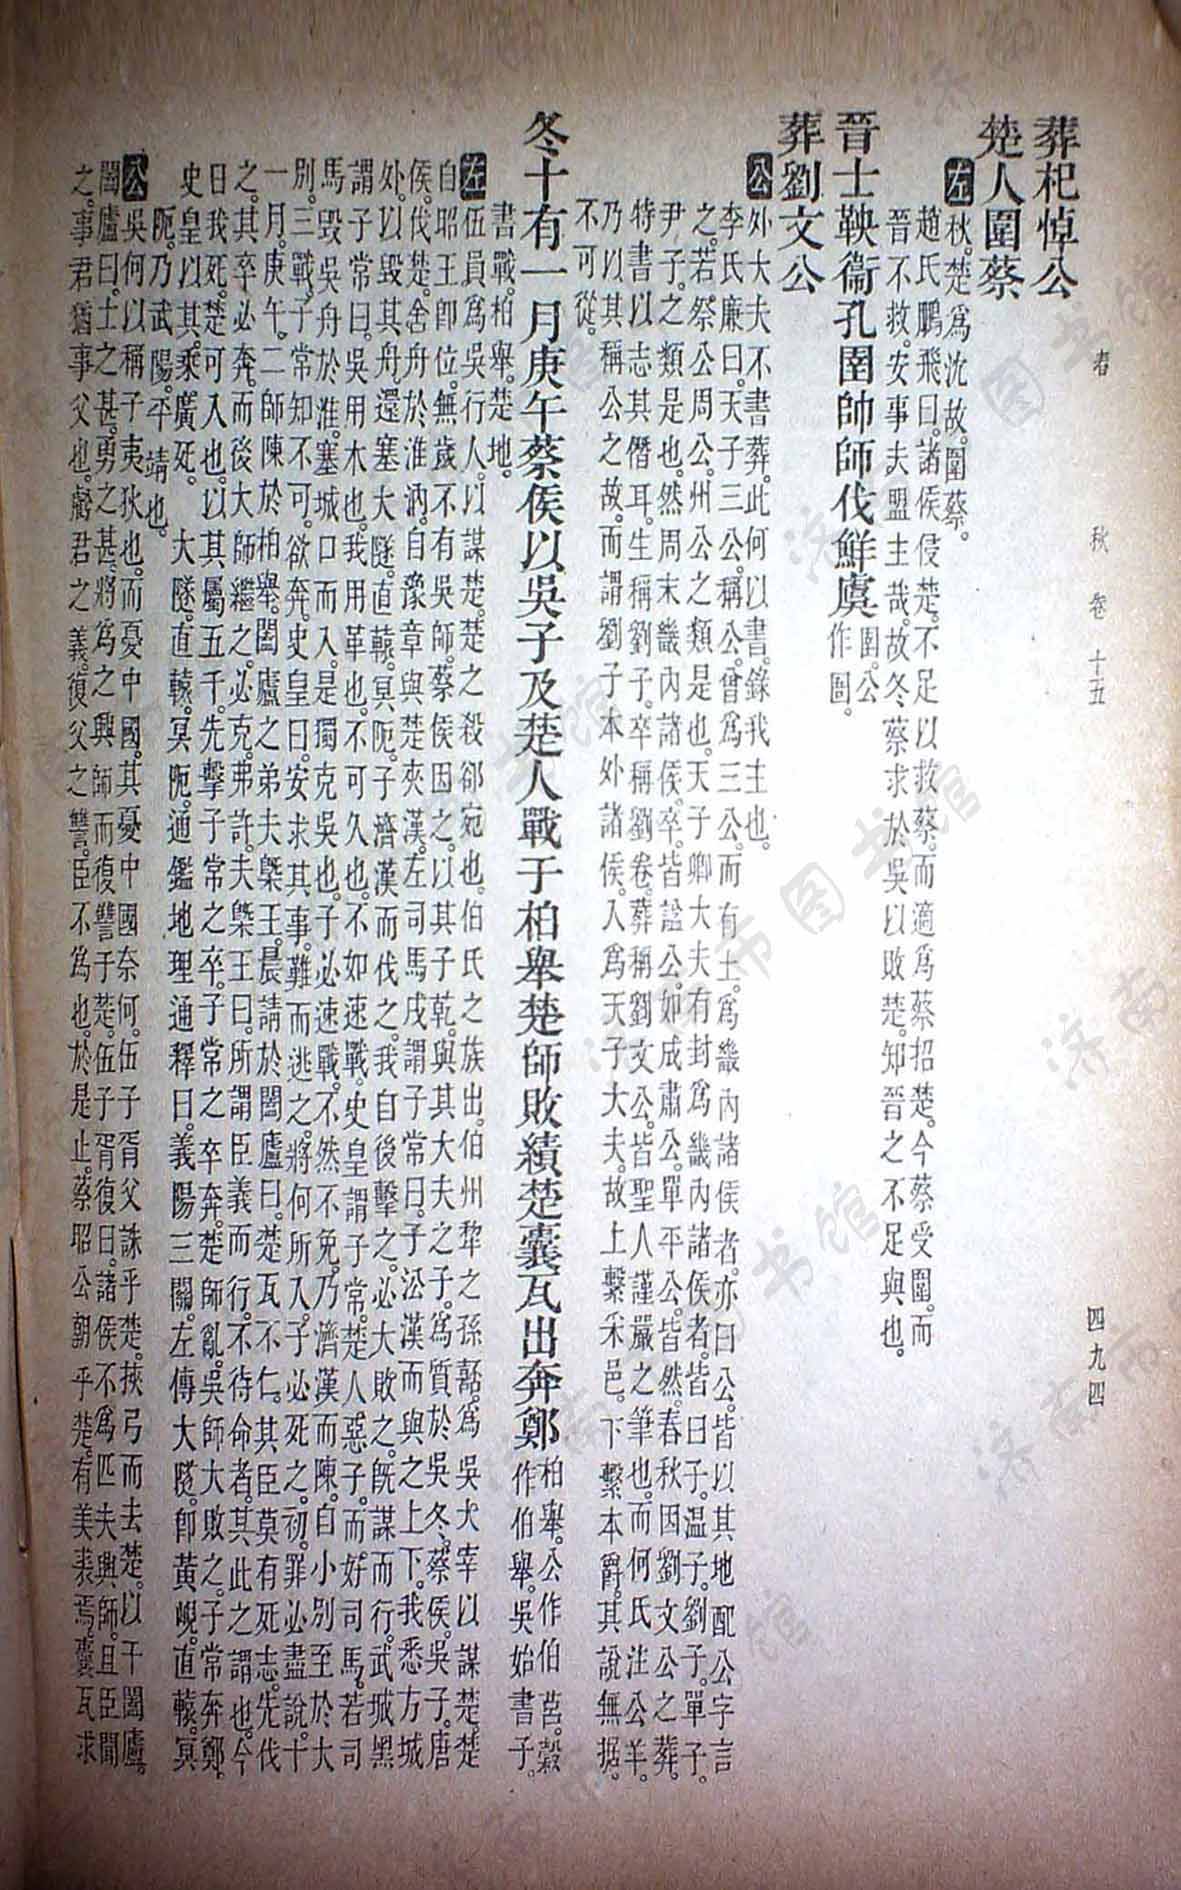 春秋 卷十五 四九四
葬杞悼公
楚人圍蔡
左秋。楚爲沈故。圍蔡。
趙氏鵬飛曰。諸侯侵楚。不足以救蔡。而適爲蔡招楚。今蔡受圍。而
晉不救。安事夫盟主哉。故冬蔡求於吳以敗楚。知晉之不足與也。
晉士鞅衞孔圉帥師伐鮮虞圉。公作圄。
葬劉文公
公外大夫不書葬。此何以書。錄我主也。
李氏廉曰。天子三公。稱公。曾爲三公。而有土。爲畿內諸侯者。亦曰公。皆以其地配公字言
之。若祭公周公州公之類是也。天子卿大夫有封爲畿內諸侯者。皆曰子。温子。劉子。單子。
尹子之類是也。然周末畿內諸侯。卒。皆諡公。如成肅公。單平公。皆然。春秋因劉文公之葬。
特書以志其僭耳。生稱劉子。卒稱劉卷。葬稱劉文公。皆聖人謹嚴之筆也。而何氏注公羊。
乃以其稱公之故。而謂劉子本外諸侯。入爲天子大夫。故上繫采邑。下繫本爵。其說無據。
不可從。
冬十有一月庚午蔡侯以吳子及楚人戰于柏舉楚師敗績楚囊瓦出奔鄭柏舉。公作伯莒。穀作伯舉。吳始書子。
書戰。柏舉。楚地。
左伍員爲吳行人。以謀楚。楚之殺郤宛也。伯氏之族出。伯州犂之孫嚭。爲吳大宰以謀楚。楚
自昭王卽位。無歲不有吳師。蔡侯因之。以其子乾。與其大夫之子。爲質於吳。冬。蔡侯。吳子。唐
侯。伐楚。舍舟於淮汭。自豫章與楚夾漢。左司馬戌謂子常曰。子㳂漢而與之上下。我悉方城
外。以毀其舟。還塞大隧。直轅。冥阨。子濟漢而伐之。我自後擊之。必大敗之。旣謀而行。武城黑
謂子常曰。吳用木也。我用革也。不可久也。不如速戰。史皇謂子常。楚人惡子。而好司馬。若司
馬毀吳舟於淮。塞城口而入。是獨克吳也。子必速戰。不然不免。乃濟漢而陳。自小別至於大
別。三戰。子常知不可。欲奔。史皇曰。安求其事。難而逃之。將何所入。子必死之。初罪必盡說。十
一月。庚午。二師陳於柏舉。闔廬之弟夫槩王。晨請於闔廬曰。楚瓦不仁。其臣莫有死志。先伐
之。其卒必奔。而後大師繼之。必克。弗許。夫槩王曰。所謂臣義而行。不待命者。其此之謂也。今
日我死。楚可入也。以其屬五千。先擊子常之卒。子常之卒奔。楚師亂。吳師大敗之。子常奔鄭。
史皇以其乘廣死。大隧。直轅。冥阨。通鑑地理通釋曰。義陽三關。左傳大隧。卽黃峴。直轅。冥
阨。乃武陽。平靖也。
公吳何以稱子。夷狄也。而憂中國。其憂中國奈何。伍子胥父誅乎楚。挾弓而去楚。以干闔廬。
闔廬曰。士之甚。勇之甚。將爲之興師而復讐于楚。伍子胥復曰。諸侯不爲匹夫興師。且臣聞
之。事君猶事父也。虧君之義。復父之讐。臣不爲也。於是止。蔡昭公朝乎楚。有美裘焉。囊瓦求